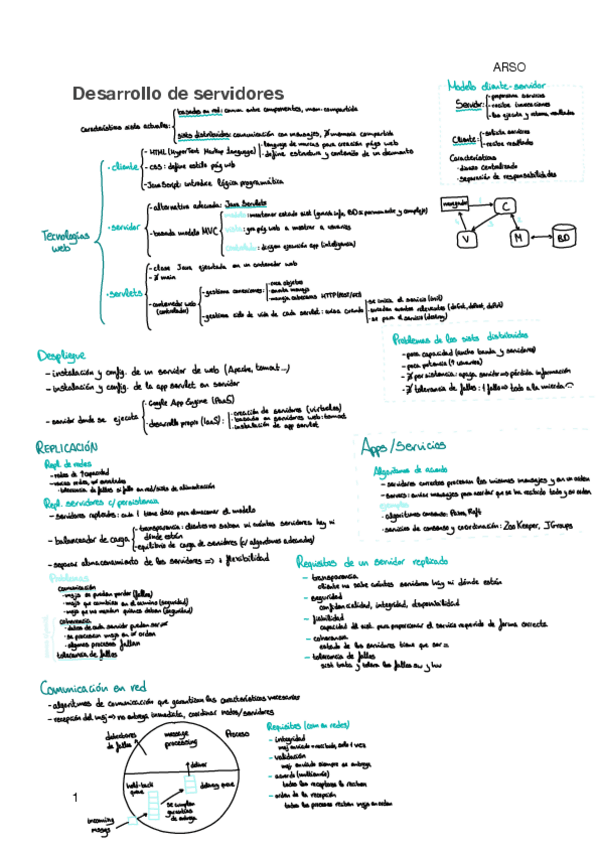 ARSO
Desarrollo de servidores
Modelo cliente-servidor
Servidor:
- proporciona servicios
- recibe invocaciones
- las ejecuta y retorna resultados
Cliente:
- solicita servicios
- recibe resultados
Características
- diseño centralizado
- separación de responsabilidades
Características sists actuales:
basados en red: comun. entre componentes, mem. compartida
sists distribuidos: comunicación con mensajes, ∄ memoria compartida
Tecnologías web
· cliente
- HTML (HyperText Markup Language)
- lenguaje de marcas para creación págs web
- define estructura y contenido de un documento
- CSS: define estilo pág web
- JavaScript: introduce lógica programática
· servidor
- alternativa adecuada: Java Servlets
- basada modelo MVC
modelo: mantener estado sist
vista: gen pág web a mostrar a usuarios
controlador: dirigen ejecución app (inteligencia)
navegador
C
V
M
BD
· servlets
- clase Java ejecutada en un contenedor web
- ∄ main
- contenedor web (controlador)
- gestiona conexiones:
- crea objetos
- maneja cabeceras HTTP
- gestiona ciclo de vida de cada servlet: avisa cuando
- se inicia el servicio (init)
- suceden eventos relevantes (doGet, doPost, doPut)
- se para el servicio (destroy)
Despliegue
- instalación y config. de un servidor de web (Apache, tomcat...)
- instalación y config. de la app servlet en servidor
- servidor donde se ejecuta
- Google App Engine (PaaS)
- desarrollo propio (IaaS):
- creación de servidores (virtuales)
- basado en servidores web: tomcat
- instalación de app servlet
Problemas de los sists distribuidos
- poca capacidad (ancho banda y servidores)
- poca potencia (↑ usuarios)
- ∄ persistencia: apaga servidor ⇒ pérdida información
- ∄ tolerancia de fallos: 1 fallo ⇒ todo a la mierda
REPLICACIÓN
Repl. de redes
- redes de ↑ capacidad
- tolerancia de fallos si fallo en red/sists de alimentación
Repl. servidores c/ persistencia
- servidores replicados: cada 1 tiene disco para almacenar el modelo
- balanceador de carga
- transparencia: clientes no saben ni cuántos servidores hay ni dónde están
- equilibrio de carga de servidores (c/ algoritmos adecuados)
- separar almacenamiento de los servidores ⇒ ↓ flexibilidad
Problemas
comunicación
- msjs se pueden perder (fallos)
- msjs que cambian en el camino (seguridad)
- msjs que no mandan quienes deben (seguridad)
coherencia
- datos de cada servidor pueden ser ≠
- se procesan msjs en ≠ orden
- algunos procesos fallan
tolerancia de fallos
Apps/Servicios
Algoritmos de acuerdo
- servidores correctos procesan los mismos mensajes y en un orden
- servers: envían mensajes para acordar que se ha recibido todo y en orden
ejemplos
- algoritmos consenso: Paxos, Raft
- servicios de consenso y coordinación: ZooKeeper, JGroups
Requisitos de un servidor replicado
- transparencia
cliente no sabe cuántos servidores hay ni dónde están
- seguridad
confidencialidad, integridad, disponibilidad
- fiabilidad
capacidad del sist para proporcionar el servicio requerido de forma correcta
- coherencia
estado de los servidores tiene que ser =
- tolerancia de fallos
sist trata y tolera los fallos sw y hw
Comunicación en red
- algoritmos de comunicación que garantizan las características necesarias
- recepción del msj ⇒ no entrega inmediata, coordinar nodos/servidores
detectores de fallos
message processing
Proceso
deliver
hold-back queue
delivery queue
se cumplen garantías de entrega
incoming msges
Requisitos (com en redes)
- integridad
msj enviado = recibido, solo 1 vez
- validación
msj enviado siempre se entrega
- acuerdo (multienvío)
todos los receptores lo reciben
- orden de la recepción
todos los procesos reciben msjs en orden
1